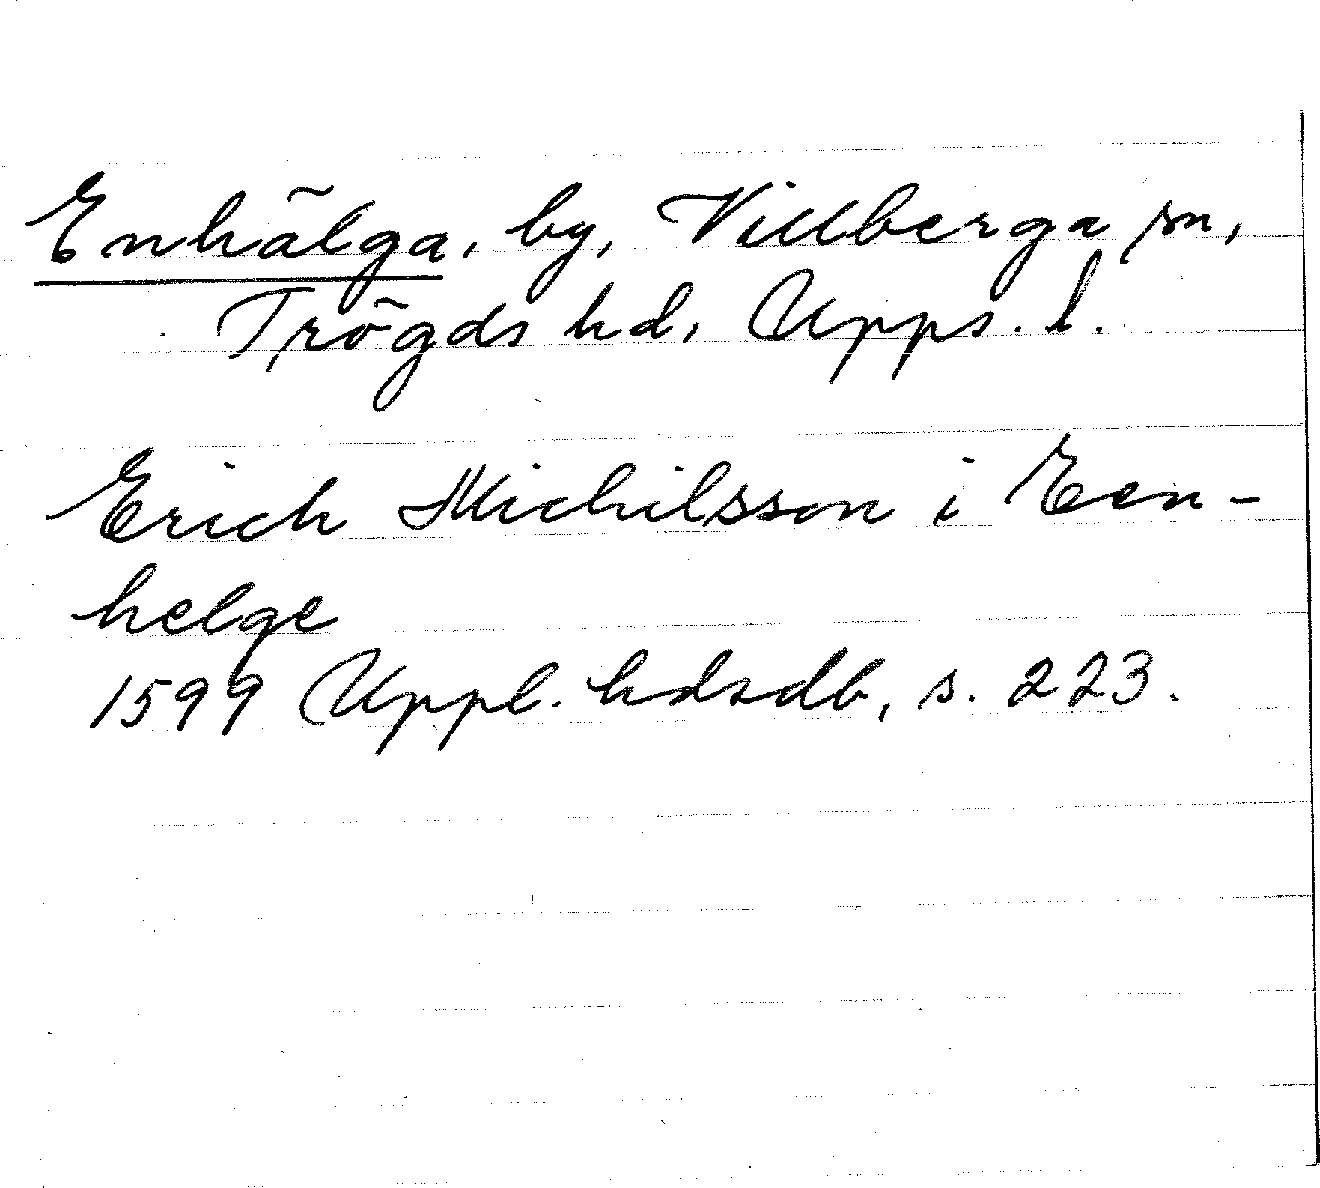 Enhälga, by, Villberga sn,
Trögds hd, Upps. l.
Erich Michilsson i Een-
helge
1599 Uppl. hdsdb, s. 223.